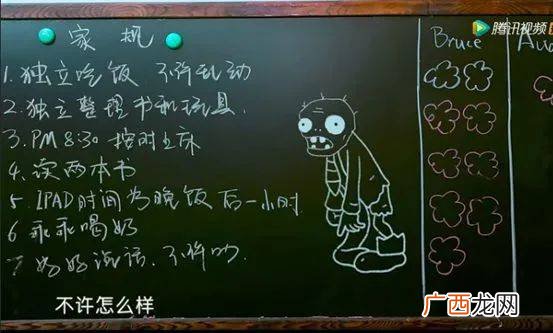 家规
1.独立吃饭 不许乱动
2.独立整理书和玩具.
3.PM 8:30 按时上床
4.读两本书
5 IPAD时间为晚饭后一小时
6 乖乖喝奶
7 好好说话.不许
Bruce
腾讯视频
不许怎么样
广西龙网